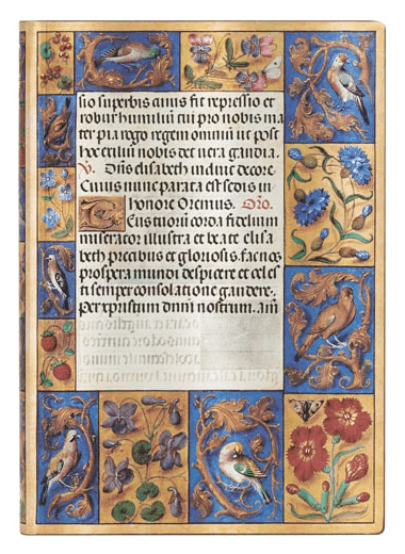 sio superbis cuius fit repressio et
robur humiliū tui pro nobis ma
ter pia rogo regem omniū ut post
hoc exiliū nobis det uera gaudia.
V. Dn̄s elisabeth induit decore.
Cuius nunc parata est sedis in
honore Oremus. Oro.
Tuorū corda fidelium
miserator illustra et beate elisa
beth precibus et gloriosis. fac nos
prospera mundi despicere et celes
ti semper consolatione gaudere.
Per xpristum dnm̄ nostrum. am̄